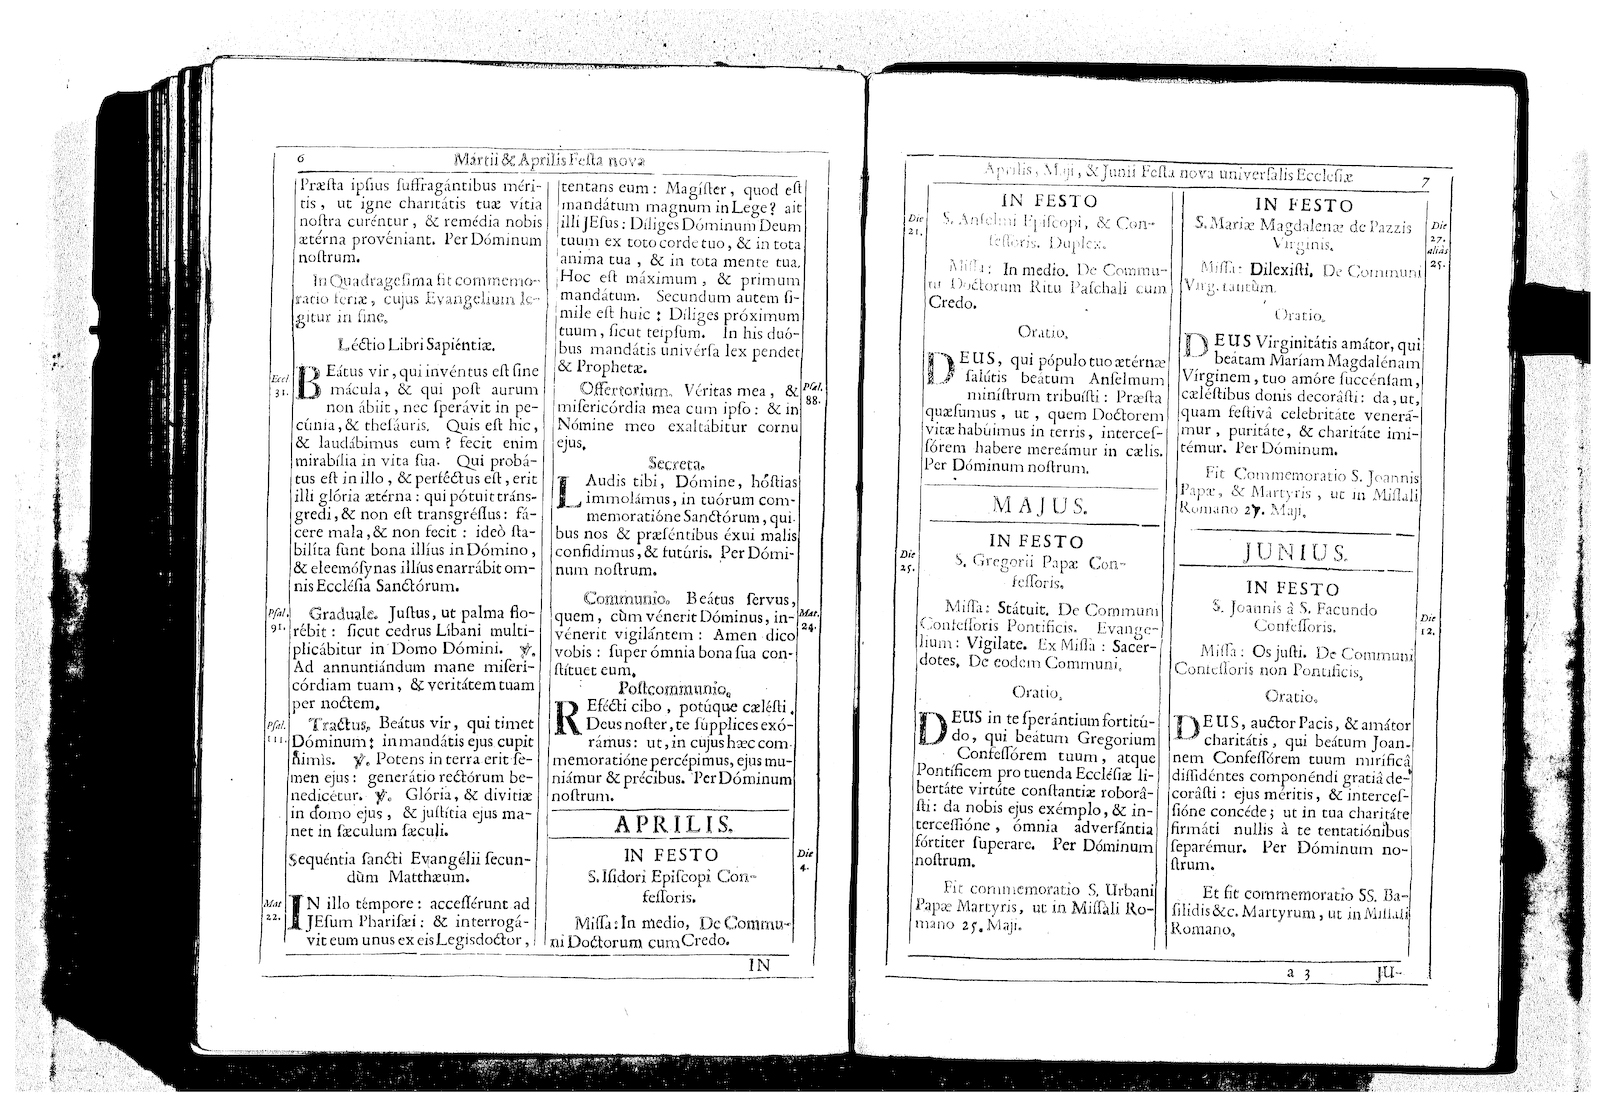 6
Martii & Aprilis Festa nova
Præsta ipsius suffragántibus méri-
tis, ut igne charitátis tuæ vítia
nostra curéntur, & remédia nobis
ætérna provéniant. Per Dóminum
nostrum.
In Quadragesima fit commemo-
ratio feriæ, cujus Evangelium le-
gitur in fine.
Léctio Libri Sapiéntiæ.
Eccl
31.
BEátus vir, qui invéntus est sine
mácula, & qui post aurum
non ábiit, nec sperávit in pe-
cúnia, & thesáuris. Quis est hic,
& laudábimus eum? fecit enim
mirabília in vita sua. Qui probá-
tus est in illo, & perféctus est, erit
illi glória ætérna: qui pótuit tráns-
gredi, & non est transgréssus: fá-
cere mala, & non fecit: ideò sta-
bilíta sunt bona illíus in Dómino,
& eleemósynas illíus enarrábit om-
nis Ecclésia Sanctórum.
Psal.
91.
Graduale. Justus, ut palma flo-
rébit: sicut cedrus Libani multi-
plicábitur in Domo Dómini. ℣.
Ad annuntiándum mane miseri-
córdiam tuam, & veritátem tuam
per noctem.
Psal.
111.
Tractus. Beátus vir, qui timet
Dóminum: in mandátis ejus cupit
nimis. ℣. Potens in terra erit se-
men ejus: generátio rectórum be-
nedicétur. ℣. Glória, & divitiæ
in domo ejus, & justítia ejus ma-
net in sæculum sæculi.
Sequéntia sancti Evangélii secun-
dùm Matthæum.
Mat
22.
IN illo témpore: accessérunt ad
JEsum Pharisæi: & interrogá-
vit eum unus ex eis Legisdoctor,
tentans eum: Magíster, quod est
mandátum magnum in Lege? ait
illi JEsus: Diliges Dóminum Deum
tuum ex toto corde tuo, & in tota
anima tua, & in tota mente tua.
Hoc est máximum, & primum
mandátum. Secundum autem sí-
mile est huic: Diliges próximum
tuum, sicut teipsum. In his duó-
bus mandátis univérsa lex pendet
& Prophetæ.
Psal.
88.
Offertorium. Véritas mea, &
misericórdia mea cum ipso: & in
Nómine meo exaltábitur cornu
ejus.
Secreta.
LAudis tibi, Dómine, hóstias
immolámus, in tuórum com-
memoratióne Sanctórum, qui-
bus nos & præséntibus éxui malis
confidimus, & futúris. Per Dómi-
num nostrum.
Mat.
24.
Communio. Beátus servus,
quem, cùm vénerit Dóminus, in-
vénerit vigilántem: Amen dico
vobis: super ómnia bona sua con-
stítuet eum.
Postcommunio.
REfécti cibo, potúque cælésti.
Deus noster, te súpplices exó-
rámus: ut, in cujus hæc com-
memoratióne percépimus, ejus mu-
niámur & précibus. Per Dóminum
nostrum.
APRILIS.
IN FESTO
Die
4.
S. Isidori Episcopi Con-
fessoris.
Missa: In medio, De Commu-
ni Doctorum cum Credo.
IN
Aprilis, Maji, & Junii Festa nova universalis Ecclesiæ
7
IN FESTO
Die
21.
S. Anselmi Episcopi, & Con-
fessoris. Duplex.
Missa: In medio. De Commu-
ni Doctorum Ritu Paschali cum
Credo.
Oratio.
DEUS, qui pópulo tuo ætérnæ
salútis beátum Anselmum
minístrum tribuísti: Præsta
quæsumus, ut, quem Doctórem
vitæ habúimus in terris, interces-
sórem habere mereámur in cælis.
Per Dóminum nostrum.
MAJUS.
IN FESTO
Die
25.
S. Gregorii Papæ Con-
fessoris.
Missa: Státuit. De Communi
Confessoris Pontificis. Evange-
lium: Vigilate. Ex Missa: Sacer-
dotes. De eodem Communi.
Oratio.
DEUS in te sperántium fortitú-
do, qui beátum Gregorium
Confessórem tuum, atque
Pontíficem pro tuenda Ecclésiæ li-
bertáte virtúte constantiæ roborá-
sti: da nobis ejus exémplo, & in-
tercessióne, ómnia adversántia
fórtiter superare. Per Dóminum
nostrum.
Fit commemoratio S. Urbani
Papæ Martyris, ut in Missáli Ro-
mano 25. Maji.
IN FESTO
Die
27.
aliàs
25.
S. Mariæ Magdalenæ de Pazzis
Virginis.
Missa: Dilexisti. De Communi
Virg. tantùm.
Oratio.
DEUS Virginitátis amátor, qui
beátam Maríam Magdalénam
Vírginem, tuo amóre succénsam,
cæléstibus donis decorásti: da, ut,
quam festivâ celebritáte venerá-
mur, puritáte, & charitáte imi-
témur. Per Dóminum.
Fit Commemoratio S. Joannis
Papæ, & Martyris, ut in Missali
Romano 27. Maji.
JUNIUS.
IN FESTO
Die
12.
S. Joannis à S. Facundo
Confessoris.
Missa: Os justi. De Communi
Confessoris non Pontificis.
Oratio.
DEUS, auctor Pacis, & amátor
charitátis, qui beátum Joan-
nem Confessórem tuum mirificâ
dissidéntes componéndi gratiâ de-
corásti: ejus méritis, & interces-
sióne concéde; ut in tua charitáte
firmáti nullis à te tentatiónibus
separémur. Per Dóminum no-
strum.
Et fit commemoratio SS. Ba-
silidis &c. Martyrum, ut in Missali
Romano.
a 3
JU-